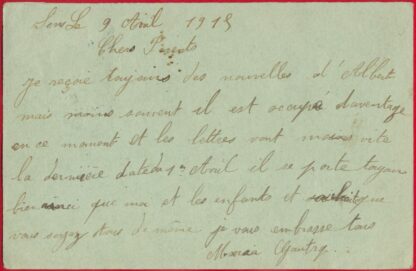 le 9 Avril 1915
Chers Parents
Je reçoie toujours des nouvelles d'Albert
mais moins souvent il est occupé daventage
en ce moment et les lettres vont moins vite
la dernière date du 1er Avril il se porte toujours
bien que moi et les enfants et souhait que
vous soyez tous de même je vous embrasse tous
Maria Gautry